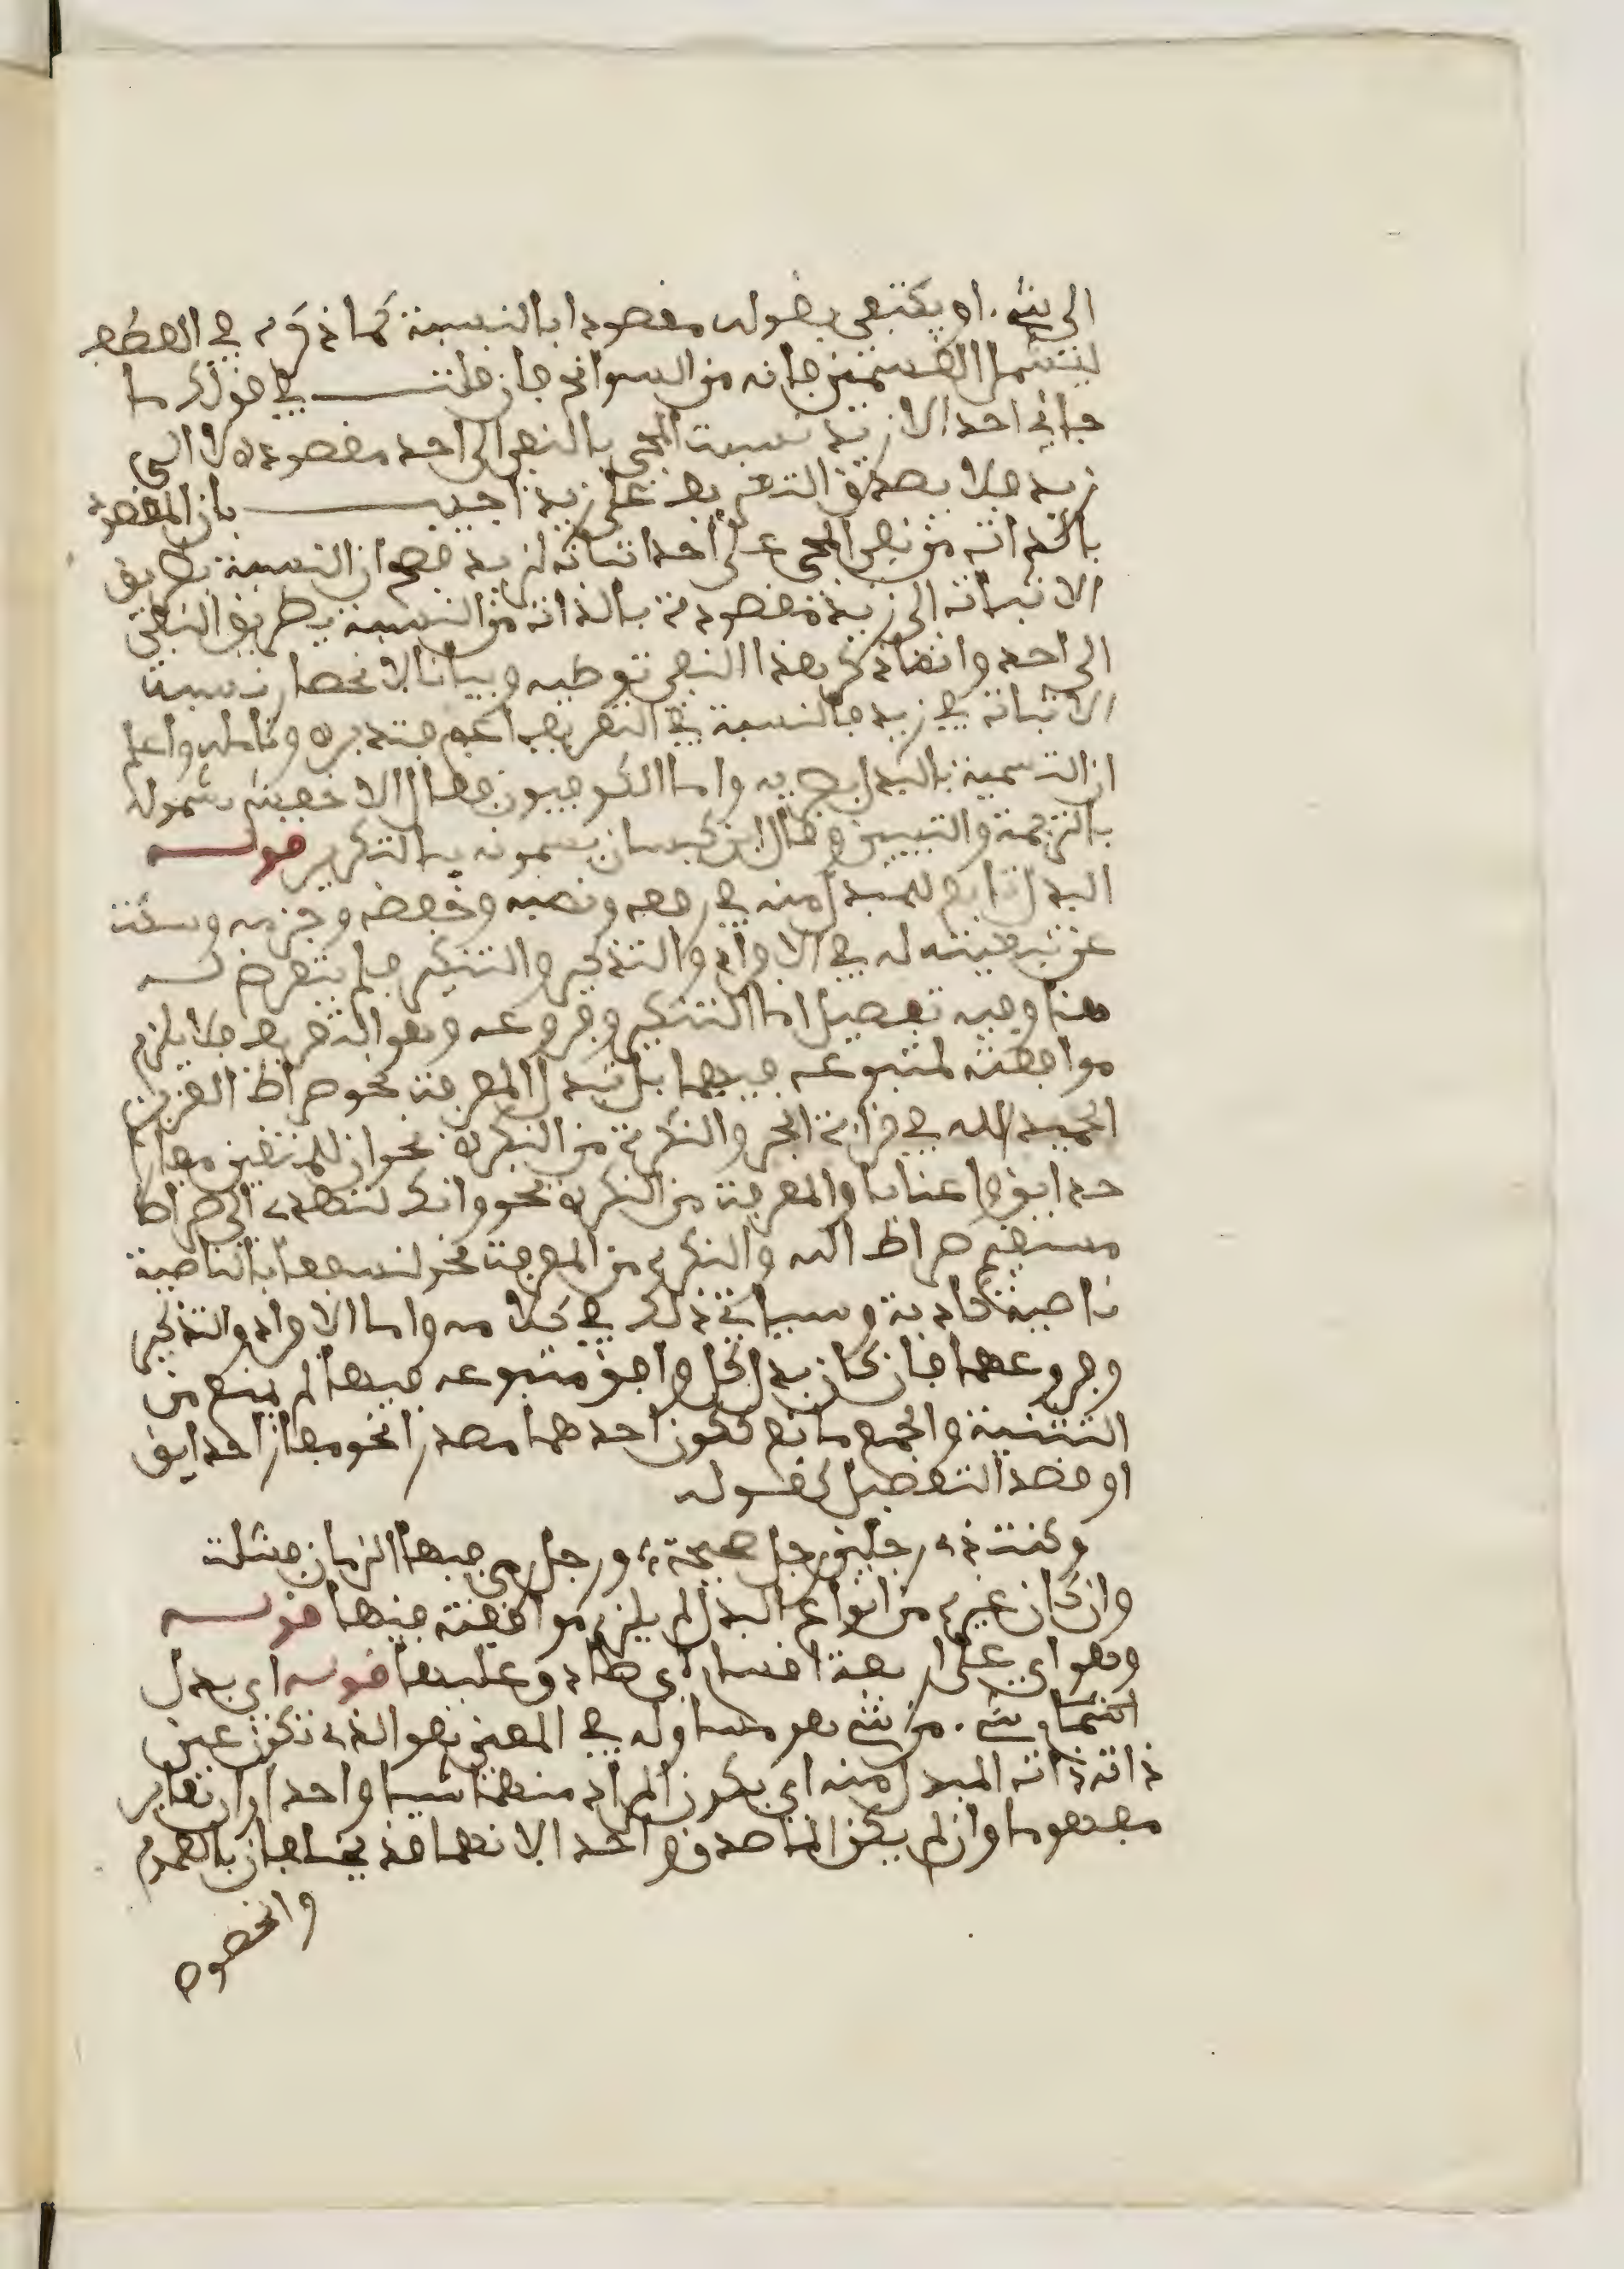 الى شيء او يكتفى بقوله مقصودا بالنسبة كما ذكره في العطف
ليشمل القسمين فانه من السوانح فان قلت في قولك ما
جاءني احد الا زيد نسبت المجي بالنفي الى احد مقصودة لا الى
زيد فلا يصدق التعريف على زيد اجيب بان المقصود
بالذات من نفي المجي عن احد اثباته لزيد فصح ان النسبة بطريق
الاثبات الى زيد مقصودة بالذات من النسبة بطريق النفي
الى احد وانما ذكر هذا النفي توطية وبيانا لانحصار نسبت
الاثبات في زيد فالنسبة في التعريف اعم فتدبره وتامله واعلم
ان التسمية بالبدل بصرية واما الكوفيون فقال الاخفش يسمونه
بالترجمة والتبيين وقال ابن كيسان يسمونه بالتكرير قوله
البدل تابع للمبدل منه في رفعه ونصبه وخفضه وجزمه وسكت
عن تبعيته له في الافراد والتذكير والتنكير فلم يتعرض له
هنا وفيه تفصيل اما التنكير وفروعه وهو التعريف فلا يلزم
موافقته لمتبوعه فيهما بل تبدل المعرفة نحو صراط العزيز
الحميد الله في قراءة الجر والنكرة من النكرة نحو ان للمتقين مفازا
حدايق واعنابا والمعرفة من النكرة نحو وانك لتهدي الى صراط
مستقيم صراط الله والنكرة من المعرفة نحو لنسفعا بالناصية
ناصية كاذبة وسياتي ذلك في كلامه واما الافراد والتذكير
وفروعهما فان كان بدل كل وافق متبوعه فيها ما لم يمنع من
التثنية والجمع مانع ككون احدهما مصدرا نحو مفازا حدايق
او قصد التفصيل كقوله
وكنت ذي رجلين رجل صحيحة، ورجل رمى فيها الزمان فشلت
وان كان غيره من انواع البدل لم يلزم موافقته فيها قوله
وهو اي على اربعة اقسام اي وعليها قوله اي بدل
الشيء من شيء هو مساو له في المعنى هو الذي تكون عين
ذاته ذات المبدل منه اي يكون المراد منهما شيا واحدا وان تغاير
مفهوما وان لم يكن الماصدق واحد الا انهما قد يختلفان بالعموم
والخصوص